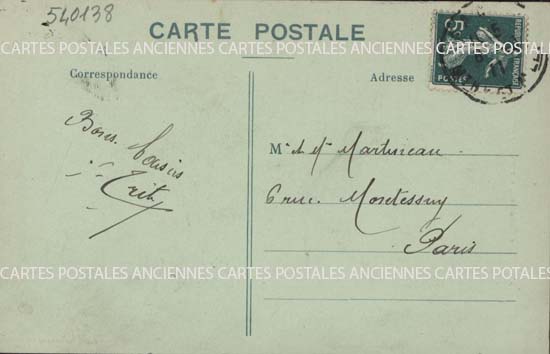 540138
CARTE POSTALE
CARTES POSTALES ANCIENNES CARTES POSTALES ANCIENNES CARTES POSTALES
Correspondance
Adresse
Bons baisers
Mr & Me Martineau
6 rue. Montessuy
Paris
CARTES POSTALES ANCIENNES CARTES POSTALES ANCIENNES CARTES POSTALES